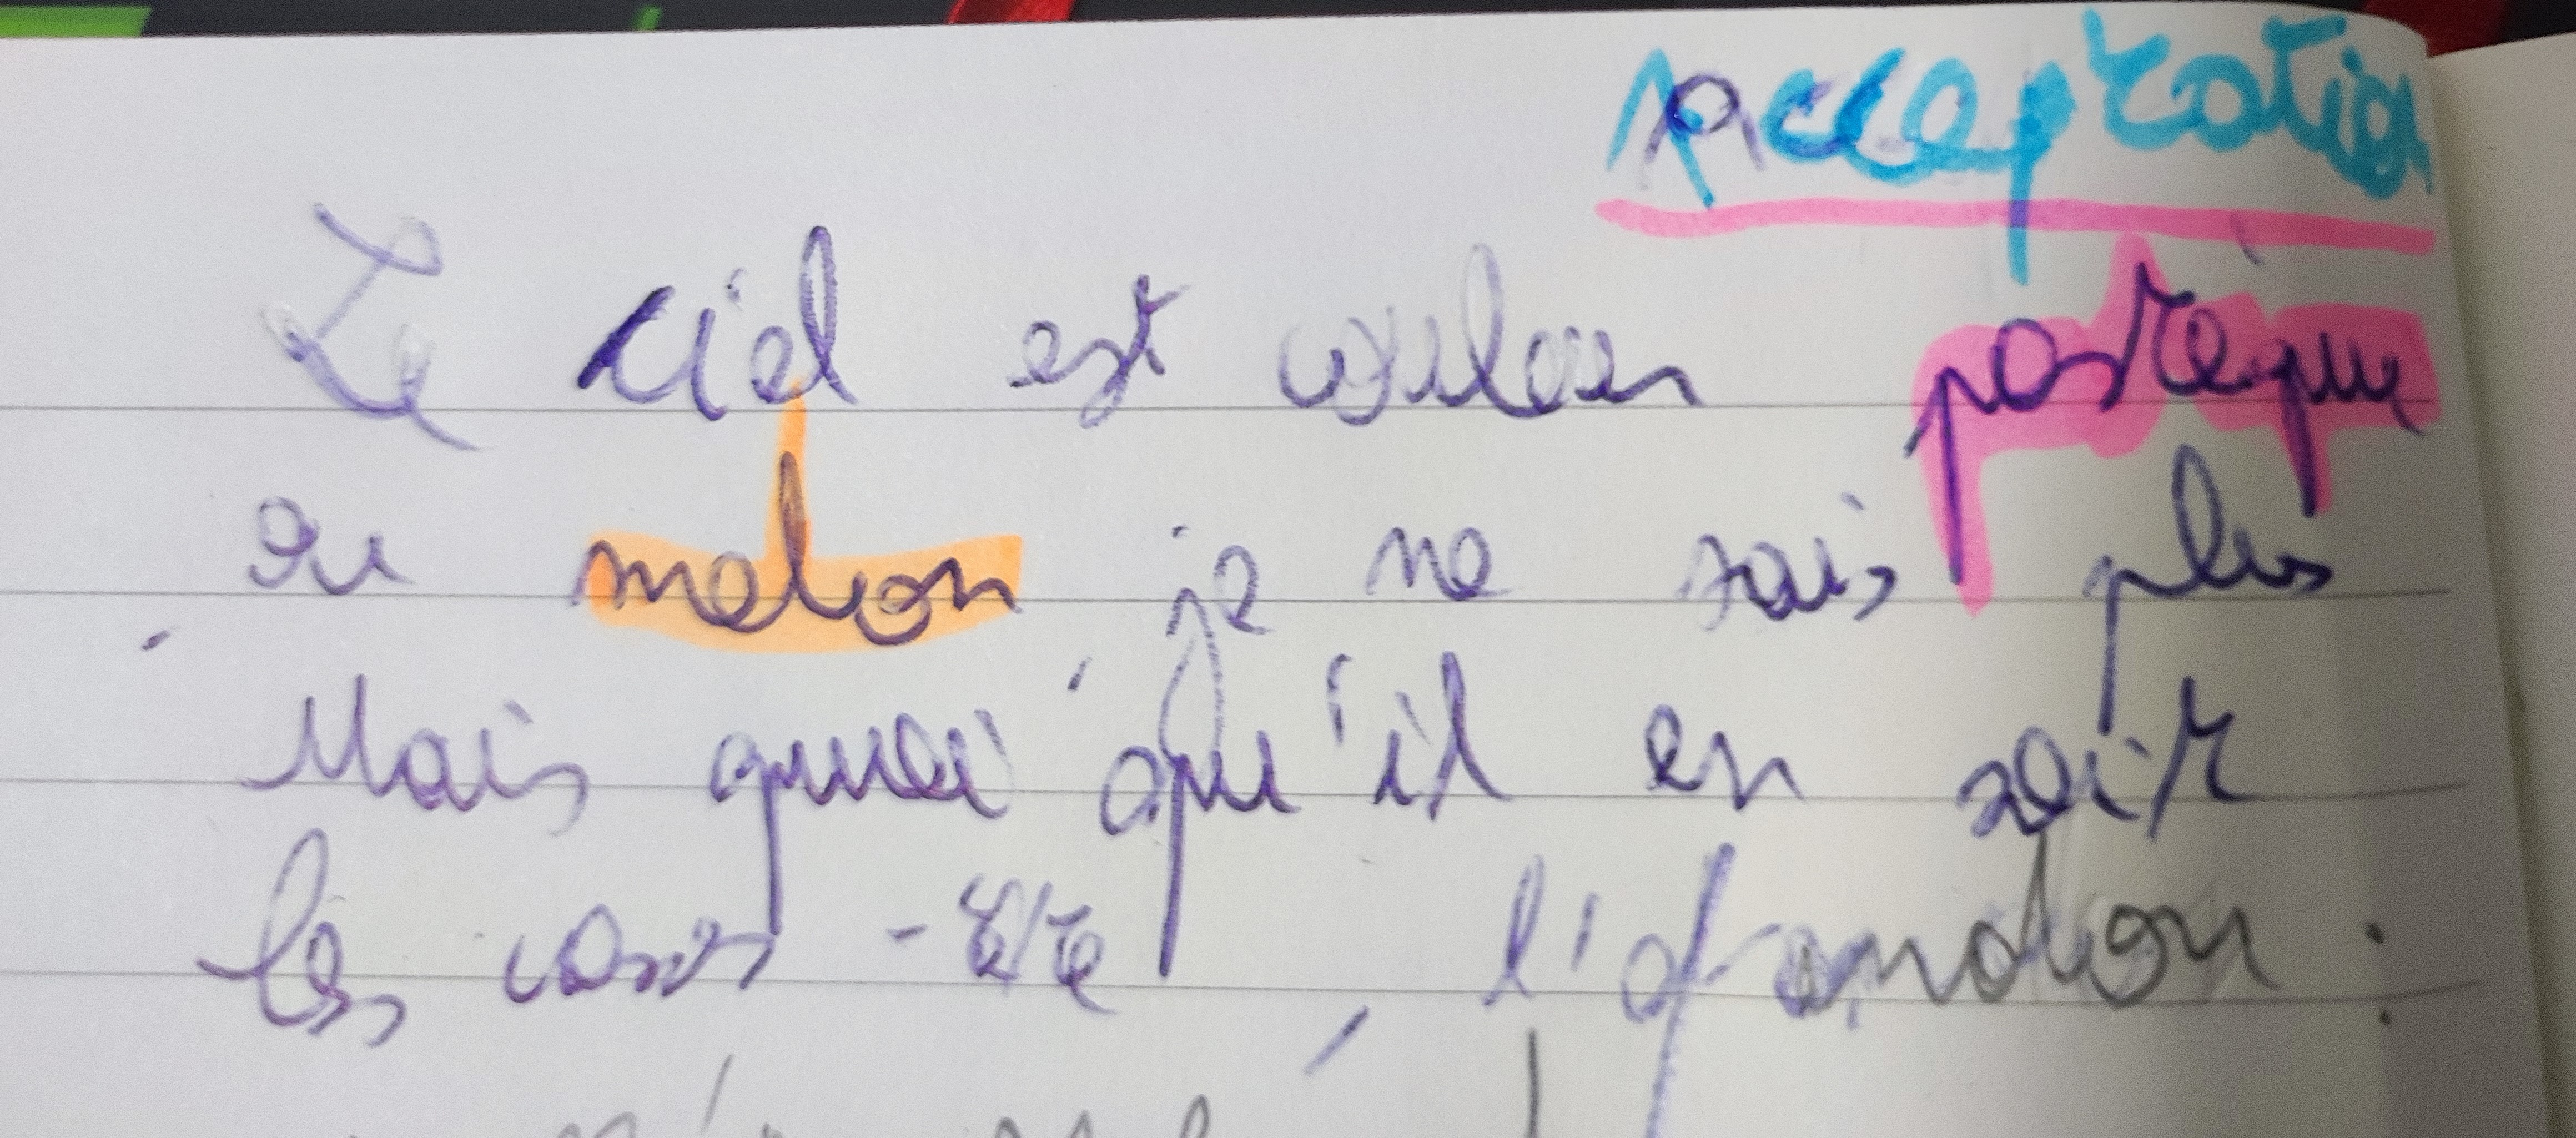 Acceptation
Le ciel est couleur pastèque
ou melon je ne sais plus
Mais quoi qu'il en soit
les